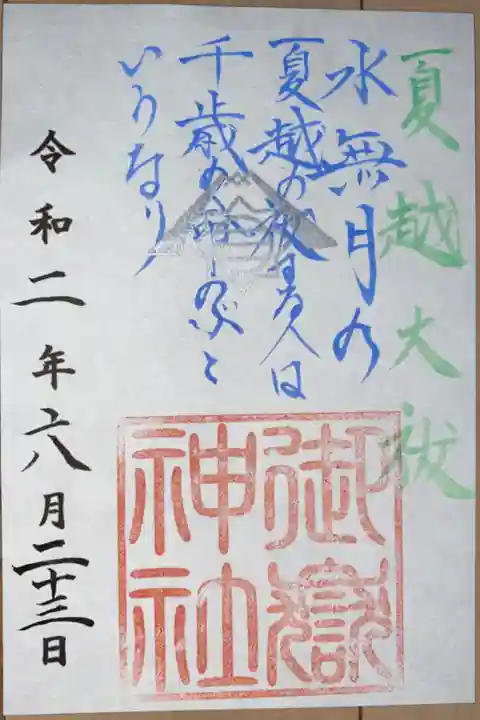 夏越大祓
水無月の
夏越の祓する人は
千歳の命のぶと
いうなり
御嶽
神社
令和二年六月二十三日